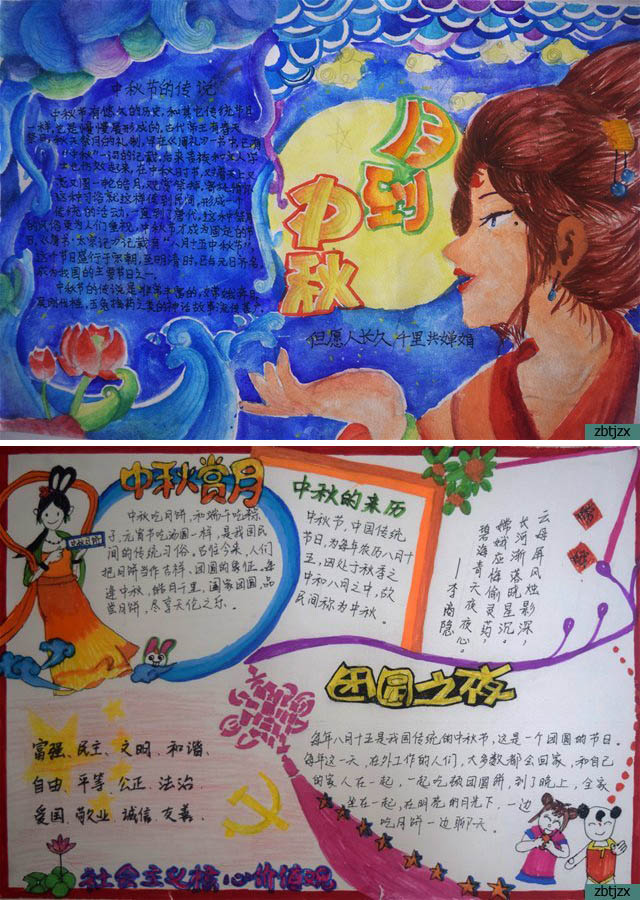 中秋节的传说
中秋节有悠久的历史,和其它传统节日
一样,也是慢慢发形成的,古代帝王有春天
祭日,秋天祭月的礼制,早在《周礼》一书中,已有
"中秋"一词的记载。后来贵族和文人学
士也仿效起来,在中秋时节,对着天上又
亮又圆一轮皓月,观赏祭拜,寄托情怀,
这种习俗就这样传到民间,形成一个
传统的活动,一直到了唐代,这种祭月
的风俗更为人们重视,中秋节才成为固定的节
日,《唐书·太宗记》记载有"八月十五中秋节",
这个节日盛行于宋朝,至明清时,已与元旦齐名,
成为我国的主要节日之一。
中秋节的传说是非常丰富的,嫦娥奔月,
吴刚伐桂,玉兔捣药之类的神话故事流传甚广。
月到
中秋
但愿人长久,千里共婵娟
zbtjzx
中秋赏月
中秋吃月饼,和端午吃粽
子,元宵节吃汤圆一样,是我国民
间的传统习俗,古往今来,人们
把月饼当作吉祥、团圆的象征。每
逢中秋,皓月千里,阖家团圆,品
尝月饼,尽享天伦之乐。
中秋的来历
中秋节,中国传统
节日,为每年农历八月十
五,因处于秋季之
中和八月之中,故
民间称为中秋。
云母屏风烛影深,
长河渐落晓星沉。
嫦娥应悔偷灵药,
碧海青天夜夜心。
——李商隐
团圆之夜
每年八月十五是我国传统的中秋节,这是一个团圆的节日。
每年这一天,在外工作的人们,大多数都会回家,和自己
的家人在一起,一起吃顿团圆饼,到了晚上,全家
坐在一起,在明亮的月光下,一边
吃月饼一边聊天。
富强、民主、文明、和谐、
自由、平等、公正、法治、
爱国、敬业、诚信、友善、
社会主义核心价值观
zbtjzx